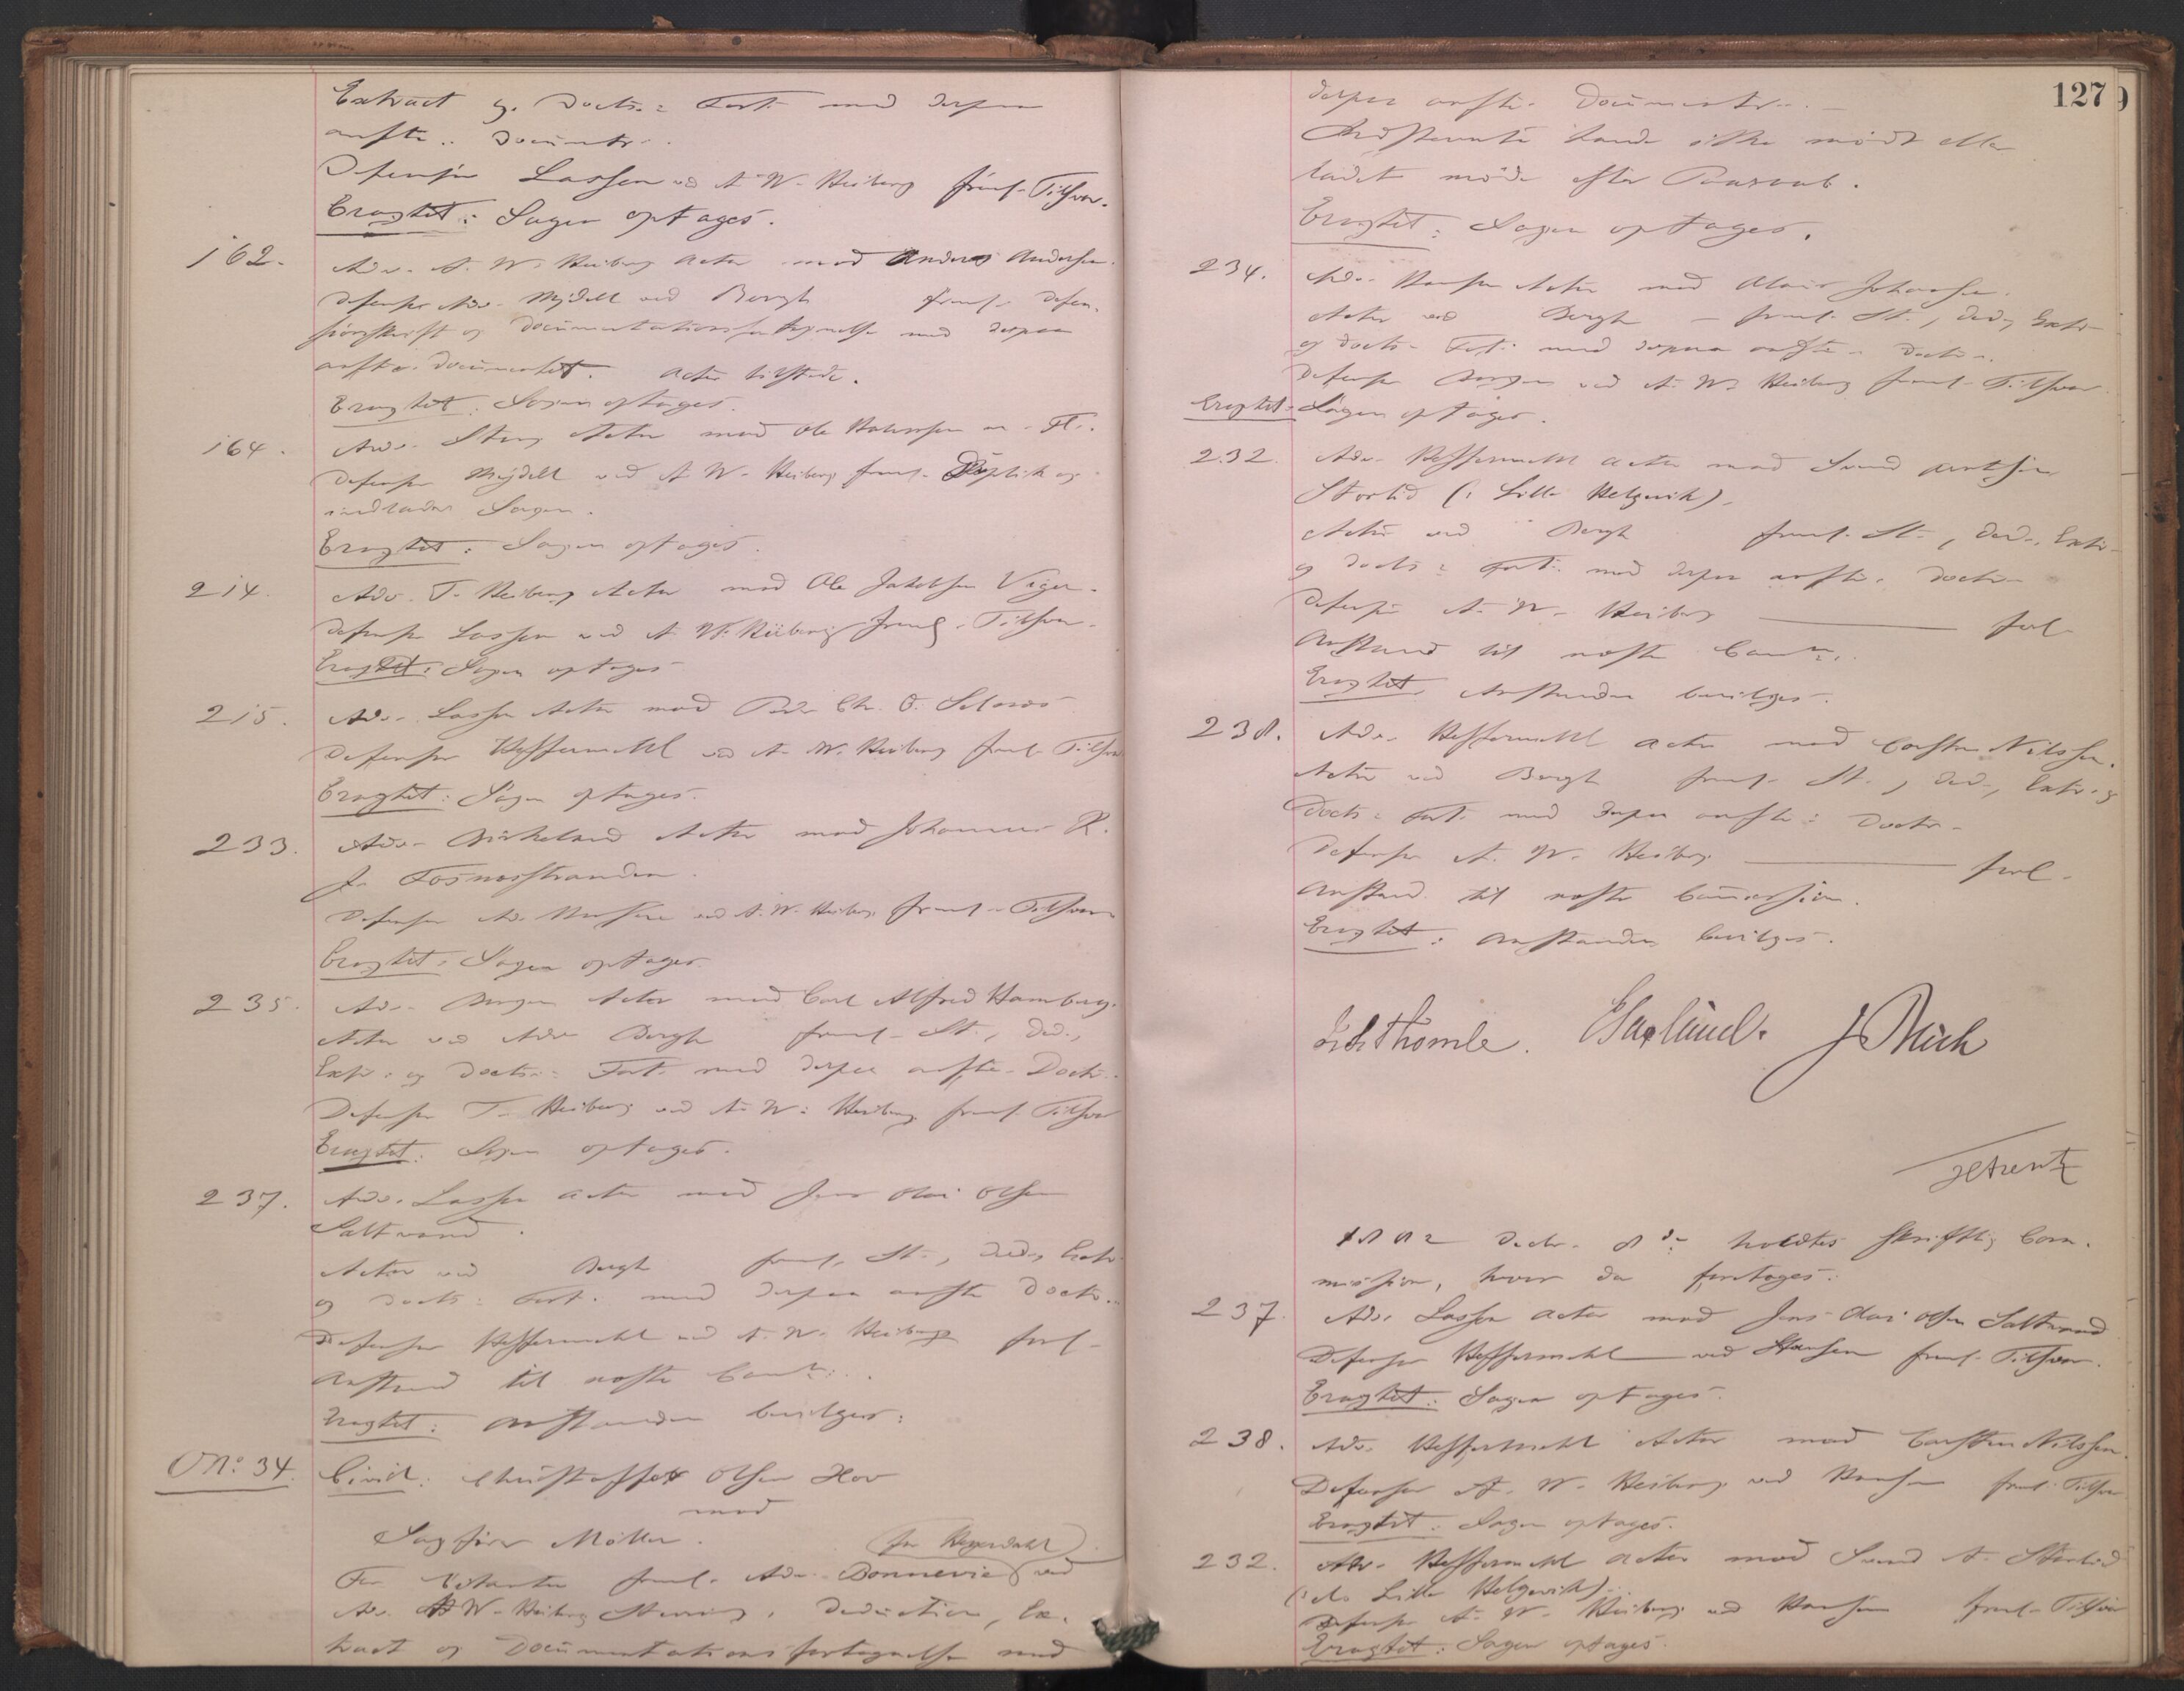 Extract og Docts: Fort. med derpaa
anførte Documtr.
Defensor Lassen ved A. W. Heiberg freml. Tilsvar.
Eragtet: Sagen optages.
162. Adv. A. W. Heiberg Actor mod Anders Andersen.
Defensor Adv. Mejdell ved Bergh freml. Defen-
siorsskrift og Documentationsfortegnelse med derpaa
anførte Documenter. Actor tilstede.
Eragtet: Sagen optages.
164. Adv. Stang Actor mod Ole Halvorsen m. Fl.
Defensor Mejdell ved A. W. Heiberg freml. Duplik og
indlader Sagen.
Eragtet: Sagen optages.
214. Adv. T. Heiberg Actor mod Ole Jakobsen Viger.
Defensor Lassen ved A. W. Heiberg freml. Tilsvar.
Eragtet: Sagen optages
215. Adv. Lassen Actor mod Peder Chr. O.
Defensor Heffermehl ved A. W. Heiberg freml. Tilsvar
Eragtet: Sagen optages.
233. Adv. Birkeland Actor mod Johannes K.
J. Fosnæsstranden.
Defensor Adv. ved A. W. Heiberg freml. Tilsvar
Eragtet: Sagen optages.
235. Adv. Actor mod Carl Alfred Hamberg.
Actor ved Adv. Bergh freml. St., Ded.,
Extr: og Docts: Fort. med derpaa anførte Doctr.
Defensor T. Heiberg ved A. W. Heiberg freml. Tilsvar
Eragtet: Sagen optages.
237. Adv. Lassen Actor mod Jens Olai Olsen
Saltrand.
Actor ved Bergh freml. St., Ded., Extr.
og Docts: Fort. med derpaa anførte Doctr.
Defensor Heffermehl ved A. W. Heiberg forl.
Anstand til næste Comm:
Eragtet: Anstanden bevilges:
No. 34. Civil: Christoffer Olsen Hov
mod
Sagfører Møller.
(for Heyerdahl)
For Citanten freml. Adv. Bonnevie ved
Adv. A. W. Heiberg Stevning, Deduction, Ex-
tract og Documentationsfortegnelse med
127
derpaa anførte Documenter.
Indstevnte havde ikke mødt eller
ladet møde efter Paaraab.
Eragtet: Sagen optages.
234. Adv. Hansen Actor mod Johansen.
Actor ved Bergh — freml. St., Ded., Extr.
og Docts. Fort. med derpaa anførte Doctr.
Defensor ved A. W. Heiberg freml. Tilsvar
Eragtet: Sagen optages.
232. Adv. Heffermehl Actor mod Svend
Storlid (: Lille Helgevik).
Actor ved Bergh freml. St., Ded., Extr.
og Docts: Fort. med derpaa anførte Doctr.
Defensor A. W. Heiberg — forl.
Anstand til næste Comm:
Eragtet: Anstanden bevilges.
238. Adv. Heffermehl Actor mod Carsten Nilssen.
Actor ved Bergh freml. St., Ded., Extr. og
Docts: Fort. med derpaa anførte: Doctr.
Defensor A. W. Heiberg — forl.
Anstand til næste Commission.
Eragtet: Anstanden bevilges.
Thomle.
1882 Decbr. 8de holdtes skriftlig Com-
mission, hvor da foretoges:
237. Adv. Lassen Actor mod Jens Olai Olsen Saltrand
Defensor Heffermehl ved Hansen freml. Tilsvar.
Eragtet: Sagen optages.
238. Adv. Heffermehl Actor mod Carsten Nilssen.
Defensor A. W. Heiberg ved Hansen freml. Tilsvar
Eragtet: Sagen optages.
232. Adv. Heffermehl Actor mod Svend A. Storlid
Lille Helgevik)
Defensor A. W. Heiberg ved Hansen freml. Tilsvar
Eragtet: Sagen optages.